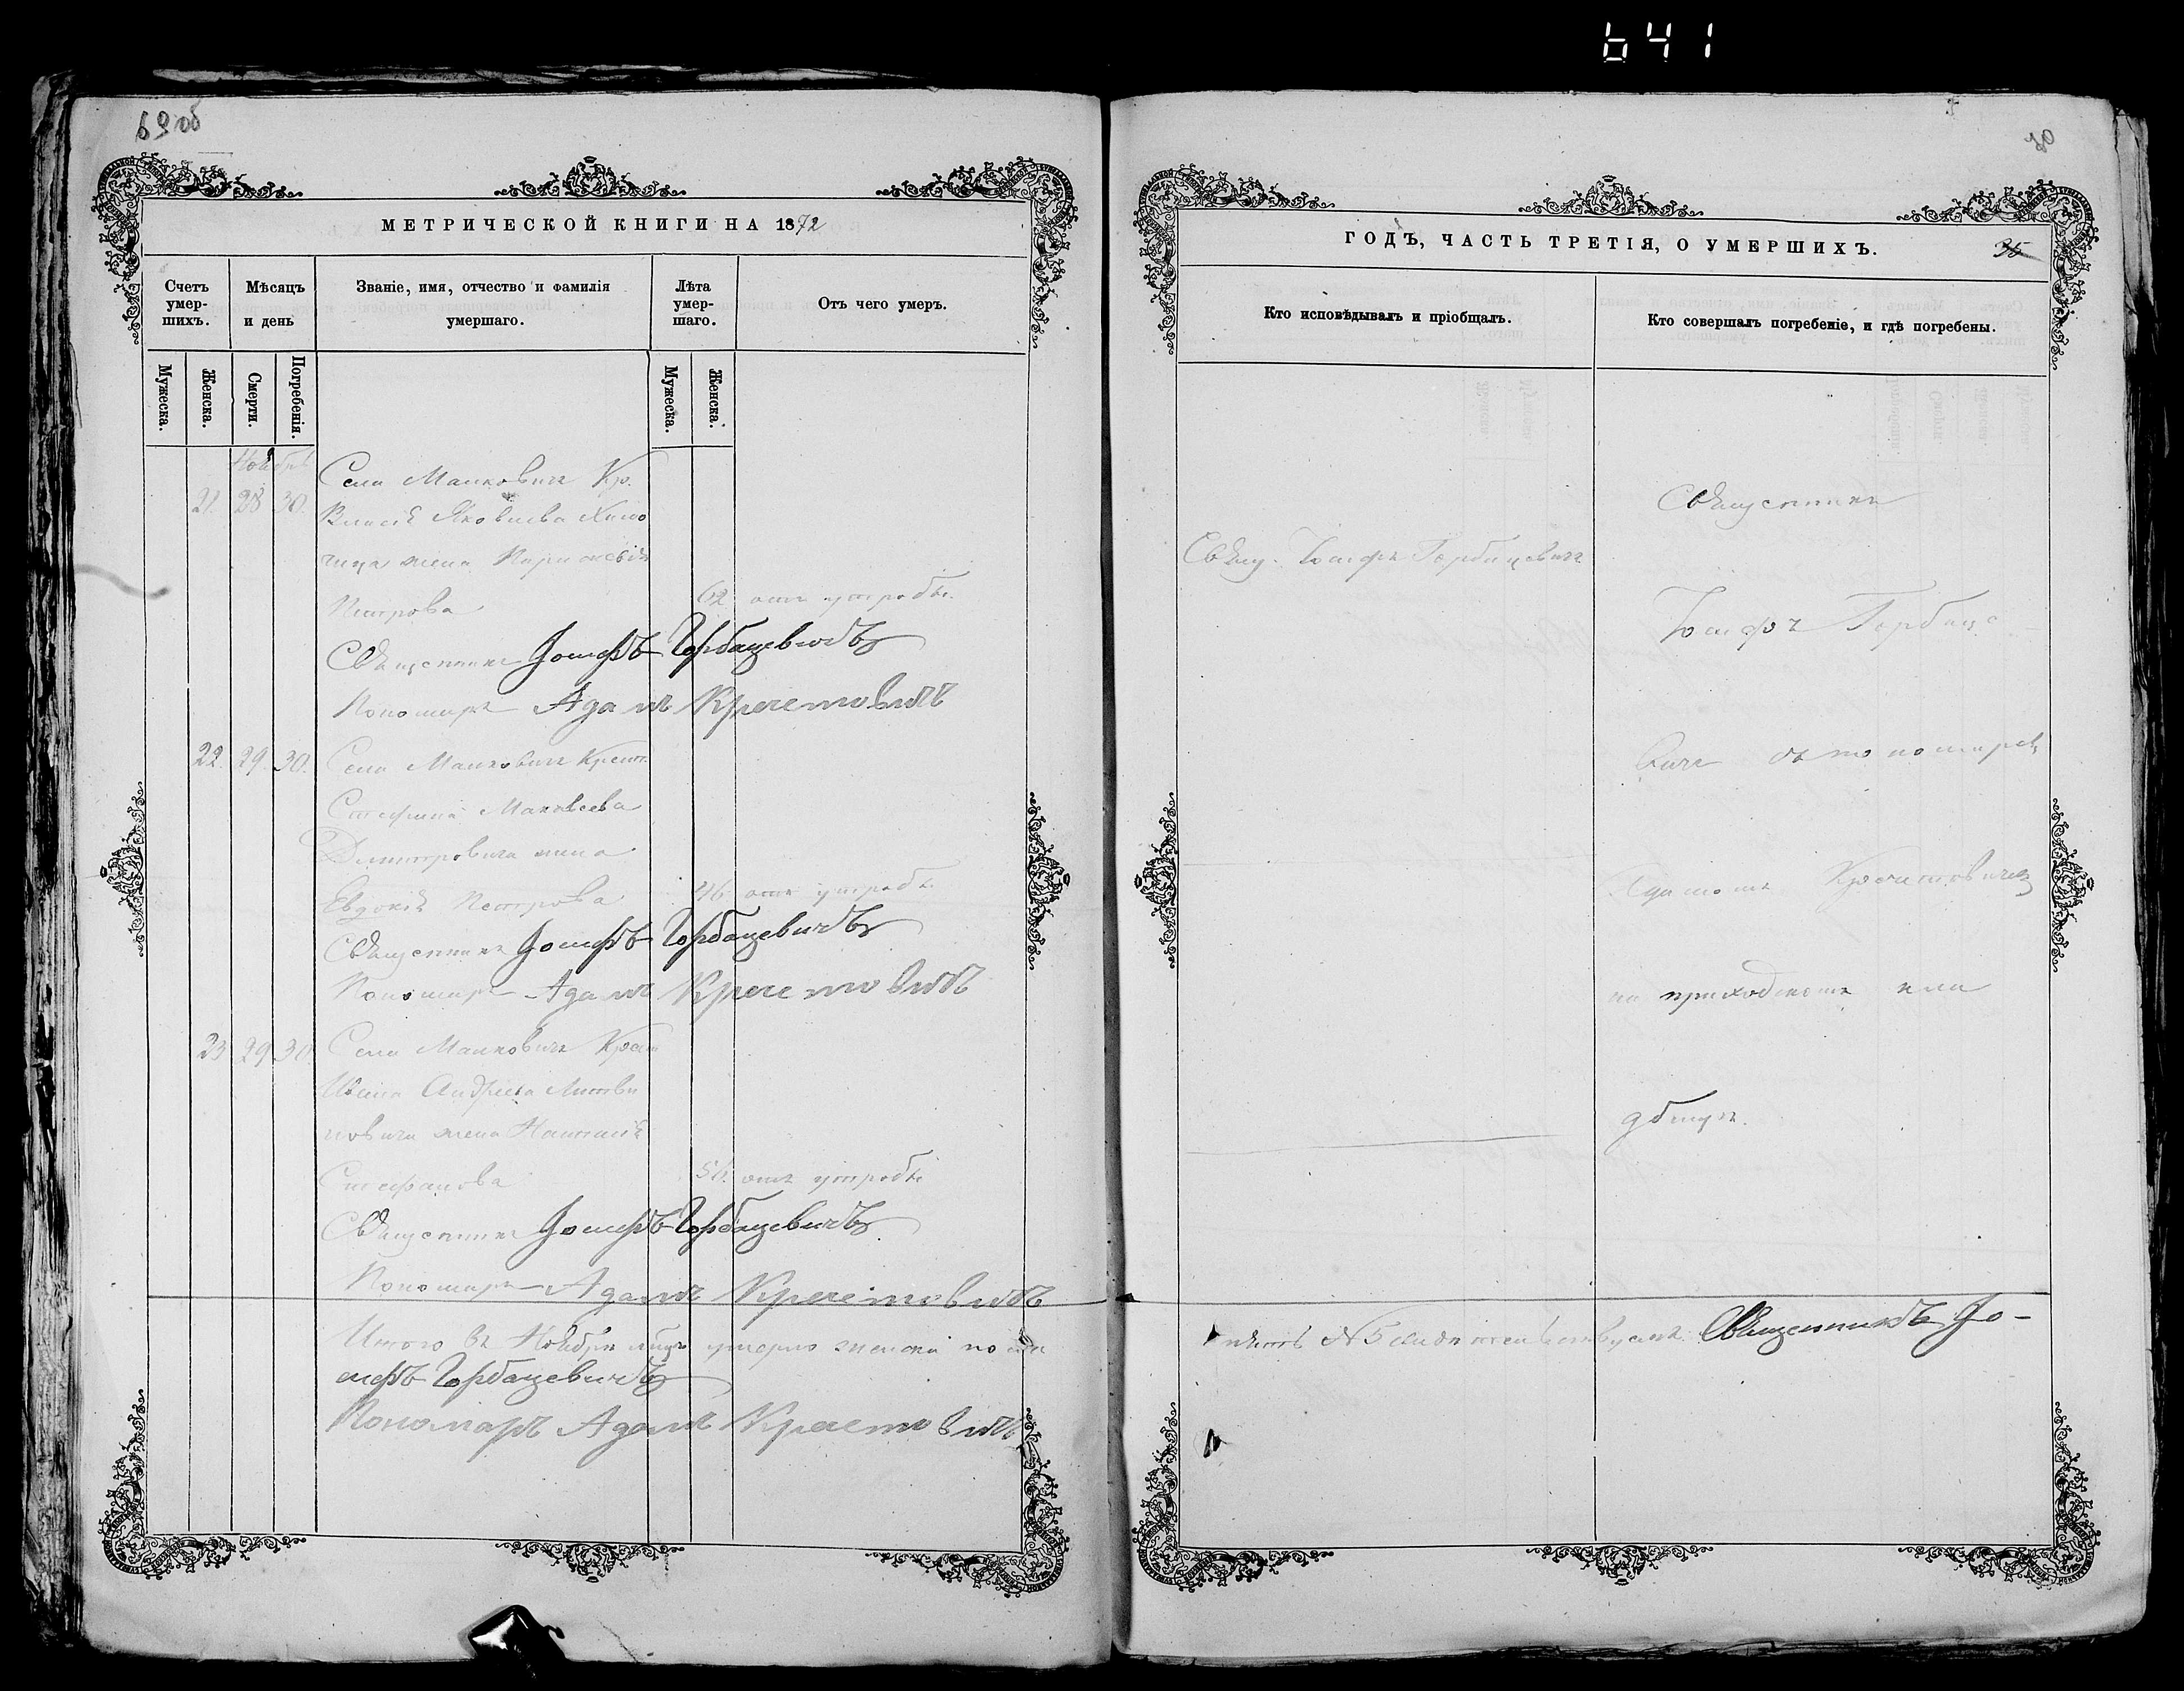 641
69 об
МЕТРИЧЕСКОЙ КНИГИ НА 1872
Счетъ умер-шихъ.
Мѣсяцъ и день
Званіе, имя, отчество и фамилія умершаго.
Лѣта умер-шаго.
Отъ чего умеръ.
Мужеска.
Женска.
Смерти.
Погребенія.
Мужеска.
Женска.
Ноябрь
21. 28 30. Села Малковичъ Кр.
Яковлева
жена
Петрова 62 отъ утробы.
Священникъ Іосифъ Горбацевичъ
Пономарь Адамъ Кречетовичъ
22. 29. 30. Села Малковичъ Крест.
Стефана Маковеева
Димитровича жена
Евдокія Петрова 46 отъ утробы
Священникъ Іосифъ Горбацевичъ
Пономарь Адамъ Кречетовичъ
23 29 30 Села Малковичъ Крест
Ивана Андреева Литви
новича жена Наталія
Стефанова отъ утробы
Священникъ Іосифъ Горбацевичъ
Пономарь Адамъ Кречетовичъ
Итого въ Ноябрѣ умерло женска пола
сифъ Горбацевичъ
Пономарь Адамъ Кречетовичъ
70
ГОДЪ, ЧАСТЬ ТРЕТІЯ, О УМЕРШИХЪ.
35
Кто исповѣдывалъ и пріобщалъ.
Кто совершалъ погребеніе, и гдѣ погребены.
Свящ. Іосифъ Горбацевичъ
Священникъ
Іосифъ Горбаце
вичъ съ пономаремъ
Адамомъ Кречетовичемъ
на приходскомъ кла
дбищѣ.
пять №5 свидѣтельствуемъ. Священникъ Іо-